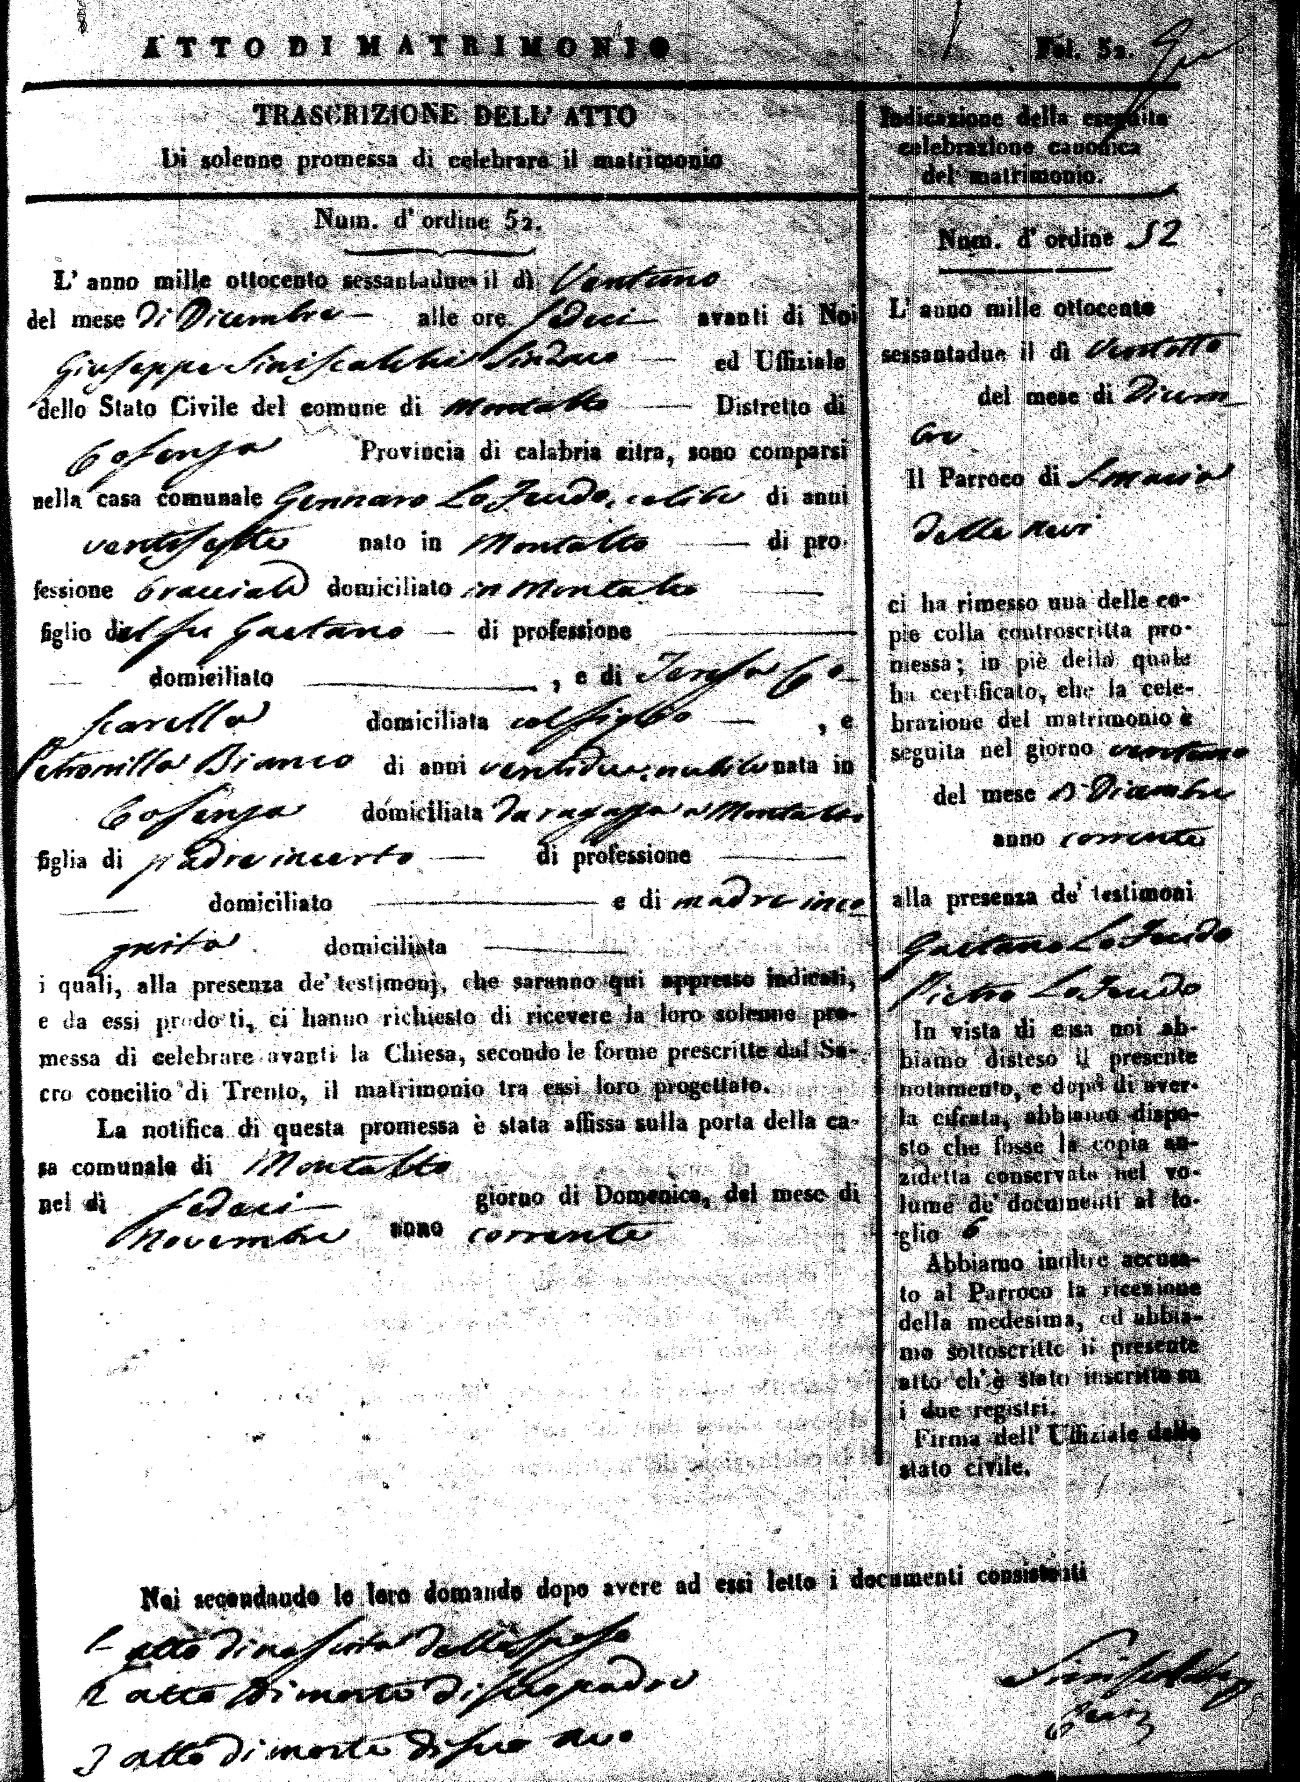 ATTO DI MATRIMONIO
Fol. 52.
TRASCRIZIONE DELL' ATTO
Di solenne promessa di celebrare il matrimonio
Num. d' ordine 52.
L' anno mille ottocento sessantadue il dì Ventuno
del mese di Dicembre alle ore sedeci avanti di Noi
Giuseppe Siniscalchi Sindaco ed Uffiziale
dello Stato Civile del comune di Montalto Distretto di
Cosenza Provincia di calabria citra, sono comparsi
nella casa comunale Gennaro Lo Feudo, celibe di anni
ventisette nato in Montalto di pro-
fessione bracciale domiciliato in Montalto
figlio del fu Gaetano di professione
domiciliato , e di Teresa Co-
scarella domiciliata col figlio , e
Petronilla Bianco di anni ventidue, nubile nata in
Cosenza domiciliata da ragazza a Montalto
figlia di padre incerto di professione
domiciliato e di madre inco
gnita domiciliata
i quali, alla presenza de' testimonj, che saranno qui appresso indicati,
e da essi prodotti, ci hanno richiesto di ricevere la loro solenne pro-
messa di celebrare avanti la Chiesa, secondo le forme prescritte dal Sa-
cro concilio di Trento, il matrimonio tra essi loro progettato.
La notifica di questa promessa è stata affissa sulla porta della ca-
sa comunale di Montalto
nel dì sedeci giorno di Domenica, del mese di
Novembre anno corrente
Noi secondando le loro domande dopo avere ad essi letto i documenti consistenti
1 atto di nascita della sposa
2 atto di morte di suo padre
3 atto di morte di suo avo
Indicazione della eseguita
celebrazione canonica
del matrimonio.
Num. d' ordine 52
L' anno mille ottocento
sessantadue il dì Ventotto
del mese di Dicem
bre
Il Parroco di S. Maria
della Nevi
ci ha rimesso una delle co-
pie colla controscritta pro-
messa; in piè della quale
ha certificato, che la cele-
brazione del matrimonio è
seguita nel giorno ventuno
del mese di Dicembre
anno corrente
alla presenza de' testimoni
Gaetano Lo Feudo
Pietro Lo Feudo
In vista di essa noi ab-
biamo disteso il presente
notamento, e dopo di aver-
la cifrata, abbiamo dispo-
sto che fosse la copia an-
zidetta conservata nel vo-
lume de' documenti al fo-
glio 6
Abbiamo inoltre accusa-
to al Parroco la ricezione
della medesima, ed abbia-
mo sottoscritto il presente
atto ch' è stato inscritto su
i due registri.
Firma dell' Uffiziale dello
stato civile.
Siniscalchi